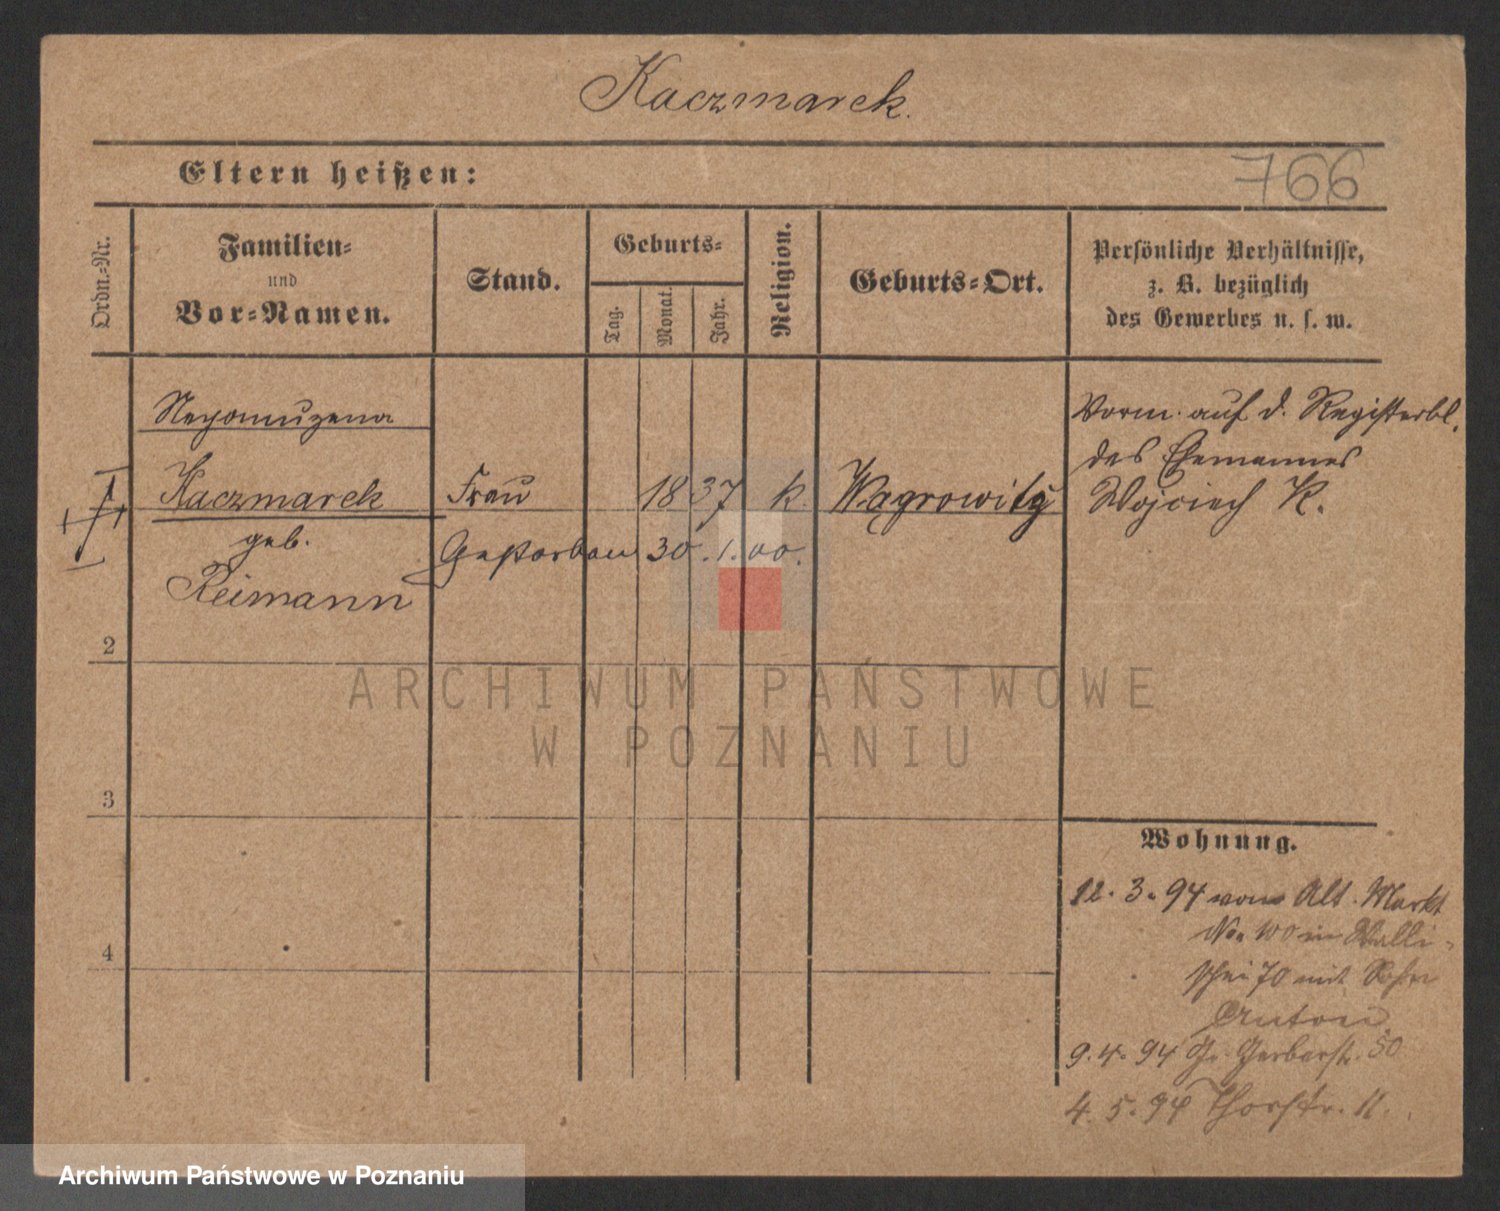 Kaczmarek.
Eltern heißen:
766
Ordn.-Nr.
Familien-
und
Vor-Namen.
Stand.
Geburts-
Tag.
Monat.
Jahr.
Religion.
Geburts-Ort.
Persönliche Verhältnisse,
z. B. bezüglich
des Gewerbes u. s. w.
Nepomuzena
Kaczmarek
geb.
Reimann
Frau
18 37
k.
Wągrowitz
Gestorben 30. 1. 00.
Vorm. auf d. Registerbl.
des Ehemannes
Wojciech K.
2
3
4
Wohnung.
12. 3. 94 von Alt. Markt
No. 100 in Walli-
schei 70 mit Sohn
Anton.
9. 4. 94 Gr. Gerberstr. 50
4. 5. 94 Thorstr. 11.
ARCHIWUM PAŃSTWOWE
W POZNANIU
Archiwum Państwowe w Poznaniu